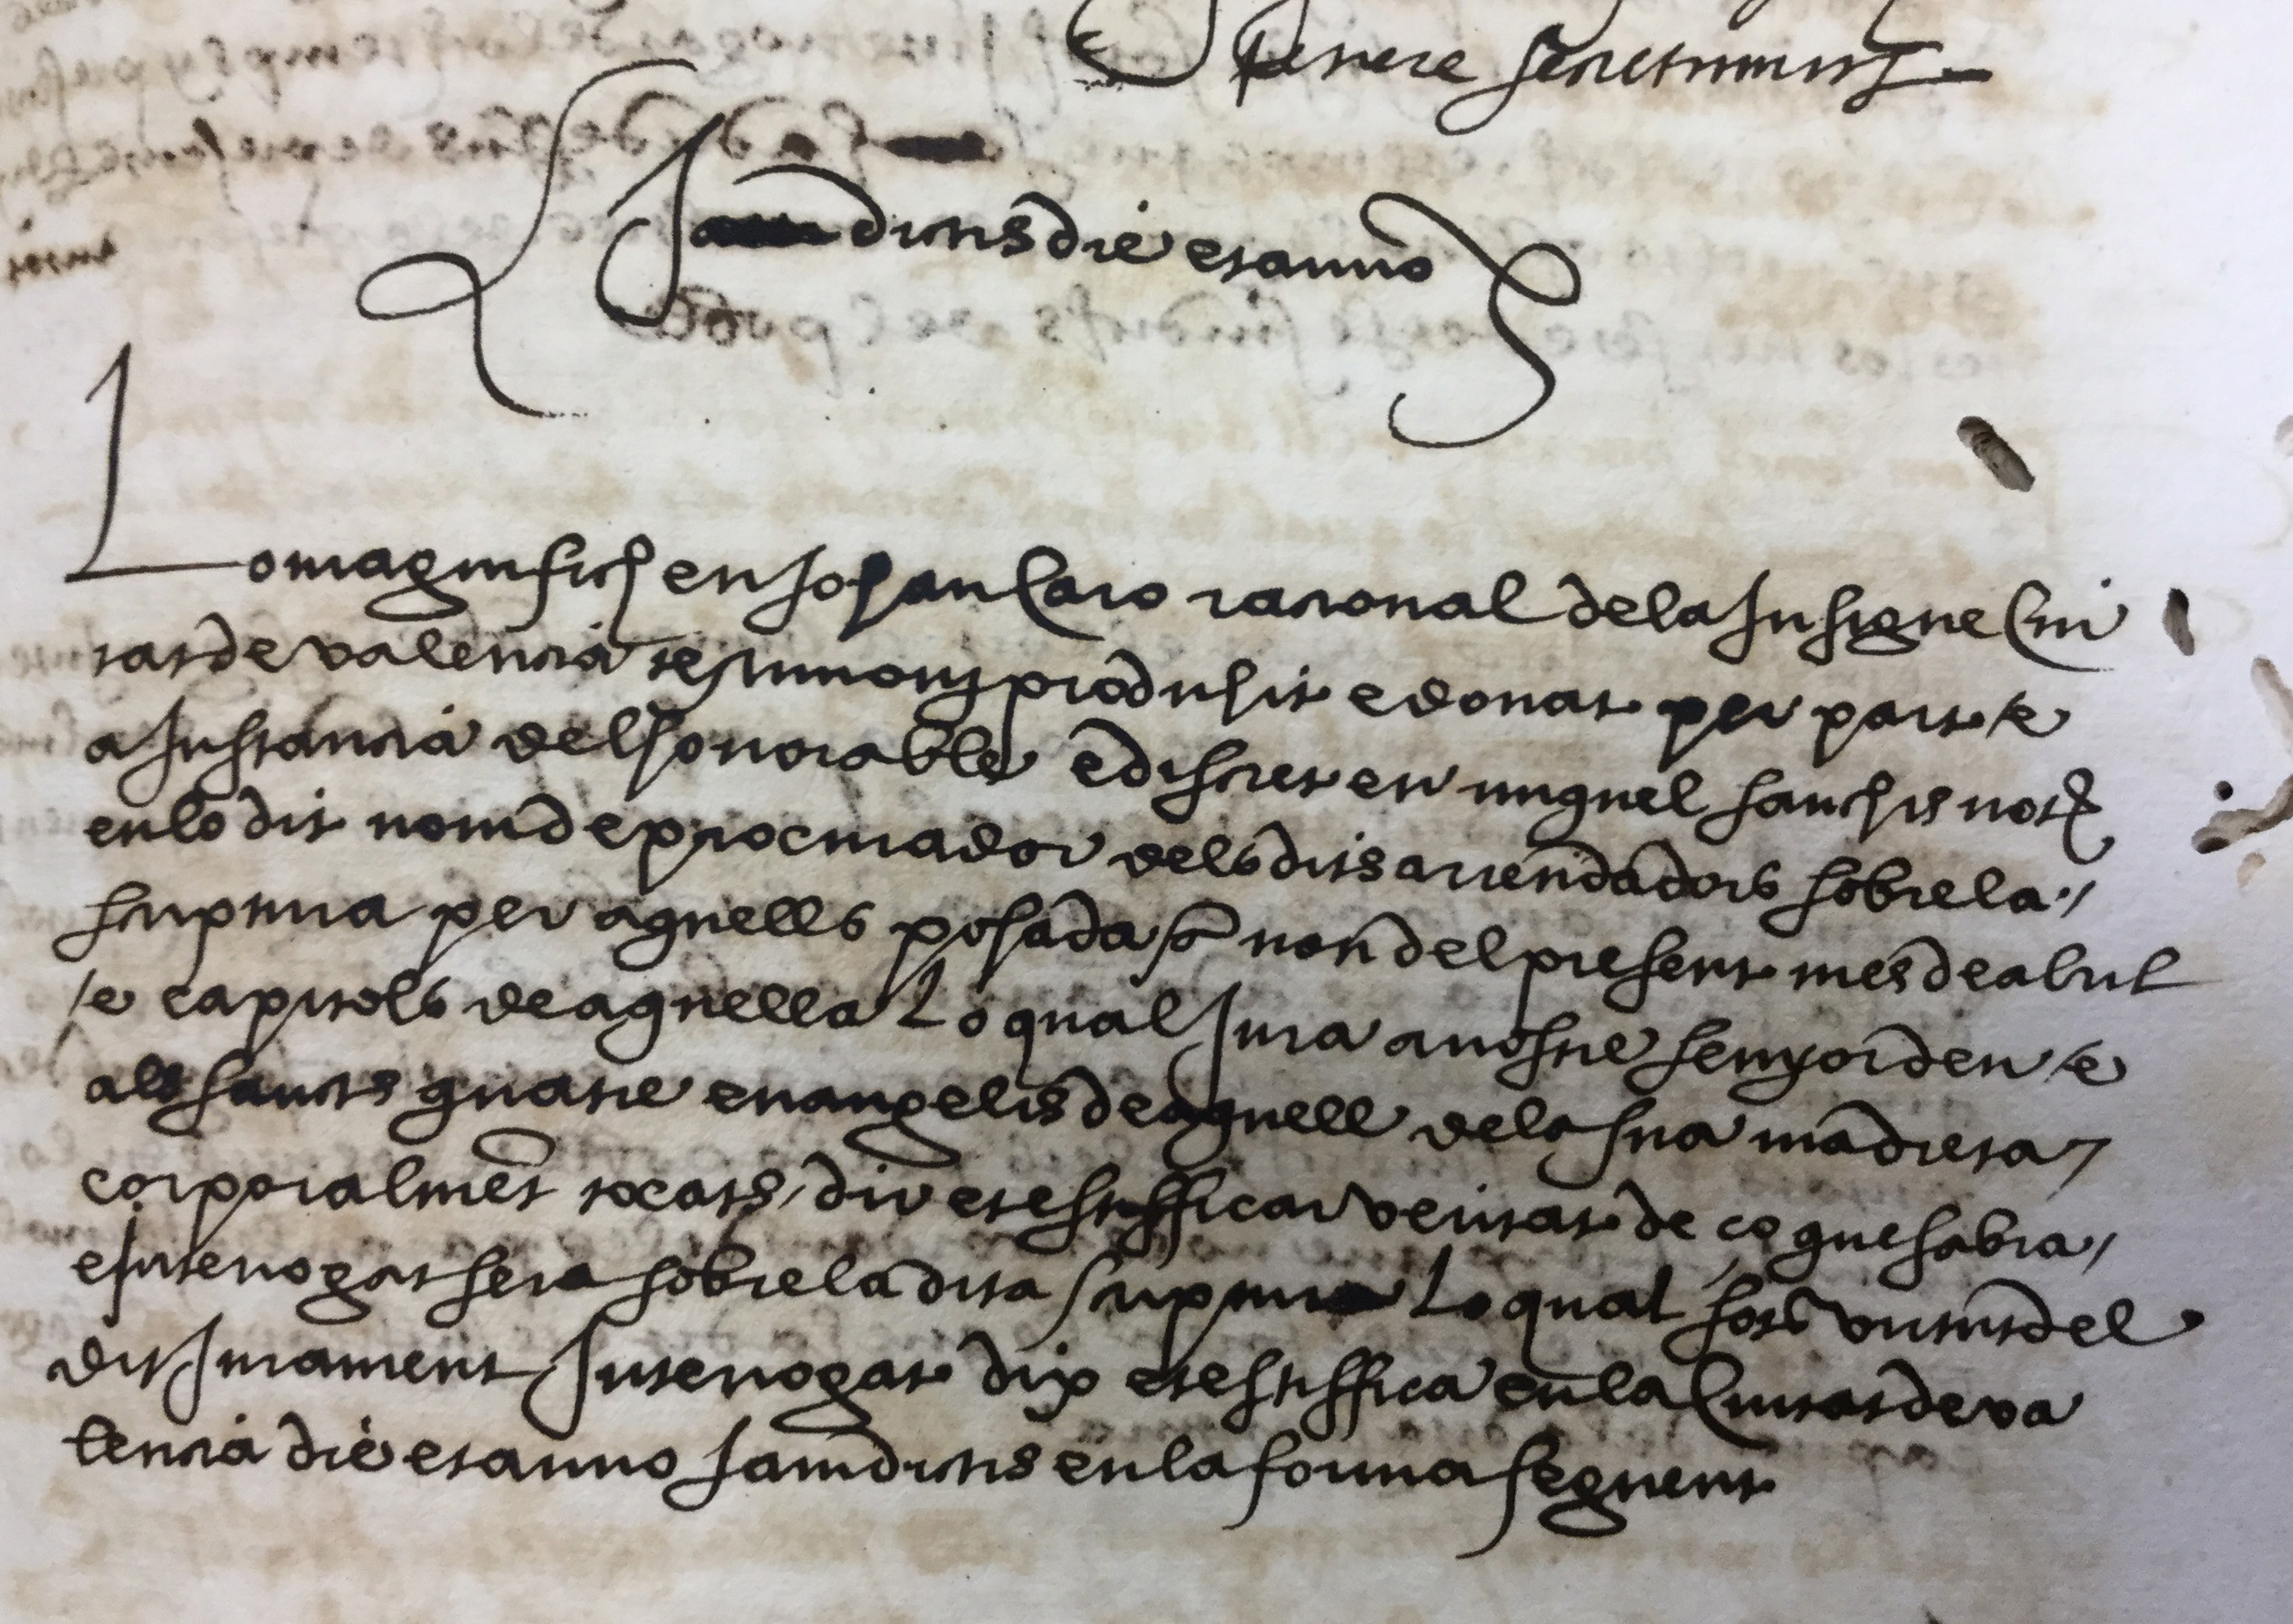 tenere sentimus
Jamdictis die et anno
Lo magnifich en Johan Caro racional de la Insigne Ciu
tat de valencia testimoni produhit e donat per part e
a Instancia del honorable e discret en miquel sanchis not
en lo dit nom de procurador dels dits arrendadors sobre la
scriptura per aquells posada a non del present mes de abril
e capitols de aquella Lo qual Jura a nostre senyor deu e
als sancts quatre euangelis de aquell de la sua ma dreta
corporalment tocats dir e testifficar veritat de ço que sabra
e Interrogat sera sobre la dita scriptura Lo qual sots virtut del
dit Jurament Interrogat dix e testiffica en la Ciutat de va
lencia die et anno Jamdictis en la forma seguent